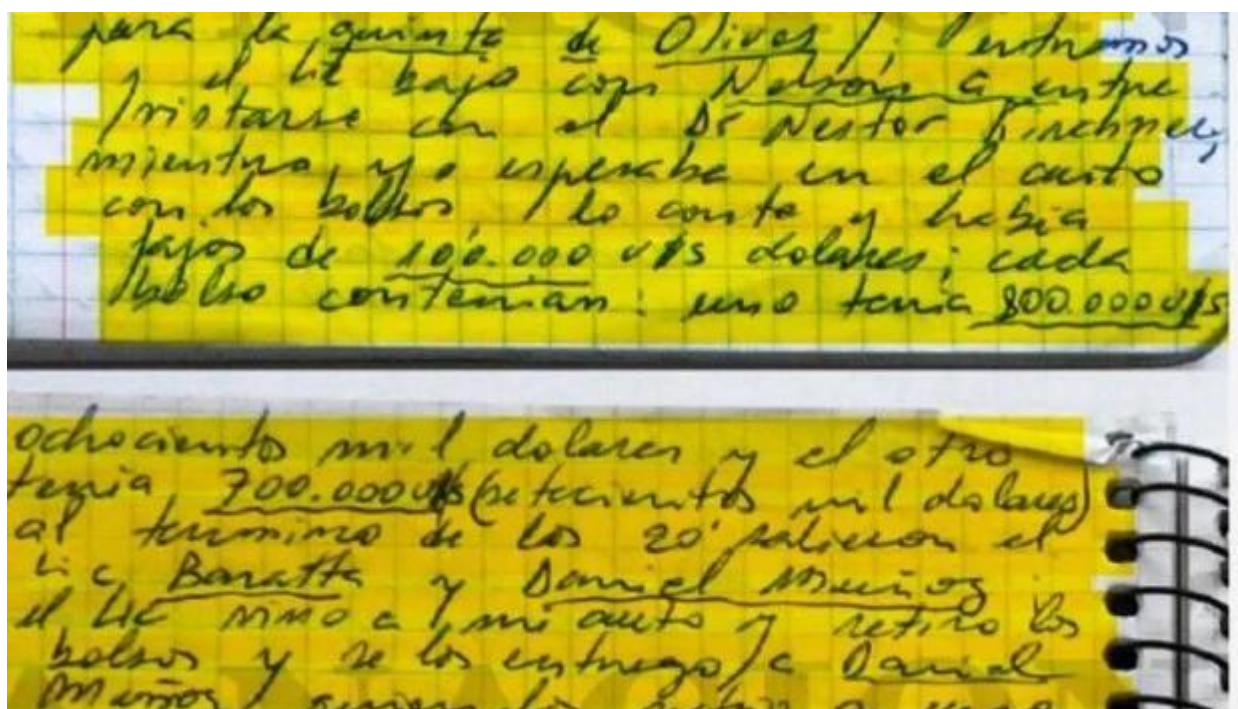 para la quinta de Olivos /; entramos
y el Lic bajo con Nelson a entre
/vistarse con el Dr Nestor Kirchner,
mientras yo esperaba en el auto
con los bolsos / lo conte y habia
fajos de 100.000 U$S dolares; cada
bolso contenian: uno tenia 800.000 U$S
ochocientos mil dolares y el otro
tenia 700.000 U$S (setecientos mil dolares)
al termino de los 20' salieron el
Lic, Baratta y Daniel Muñoz
el Lic vino a mi auto y retiro los
bolsos y se los entrego / a Daniel
Muñoz / quien los